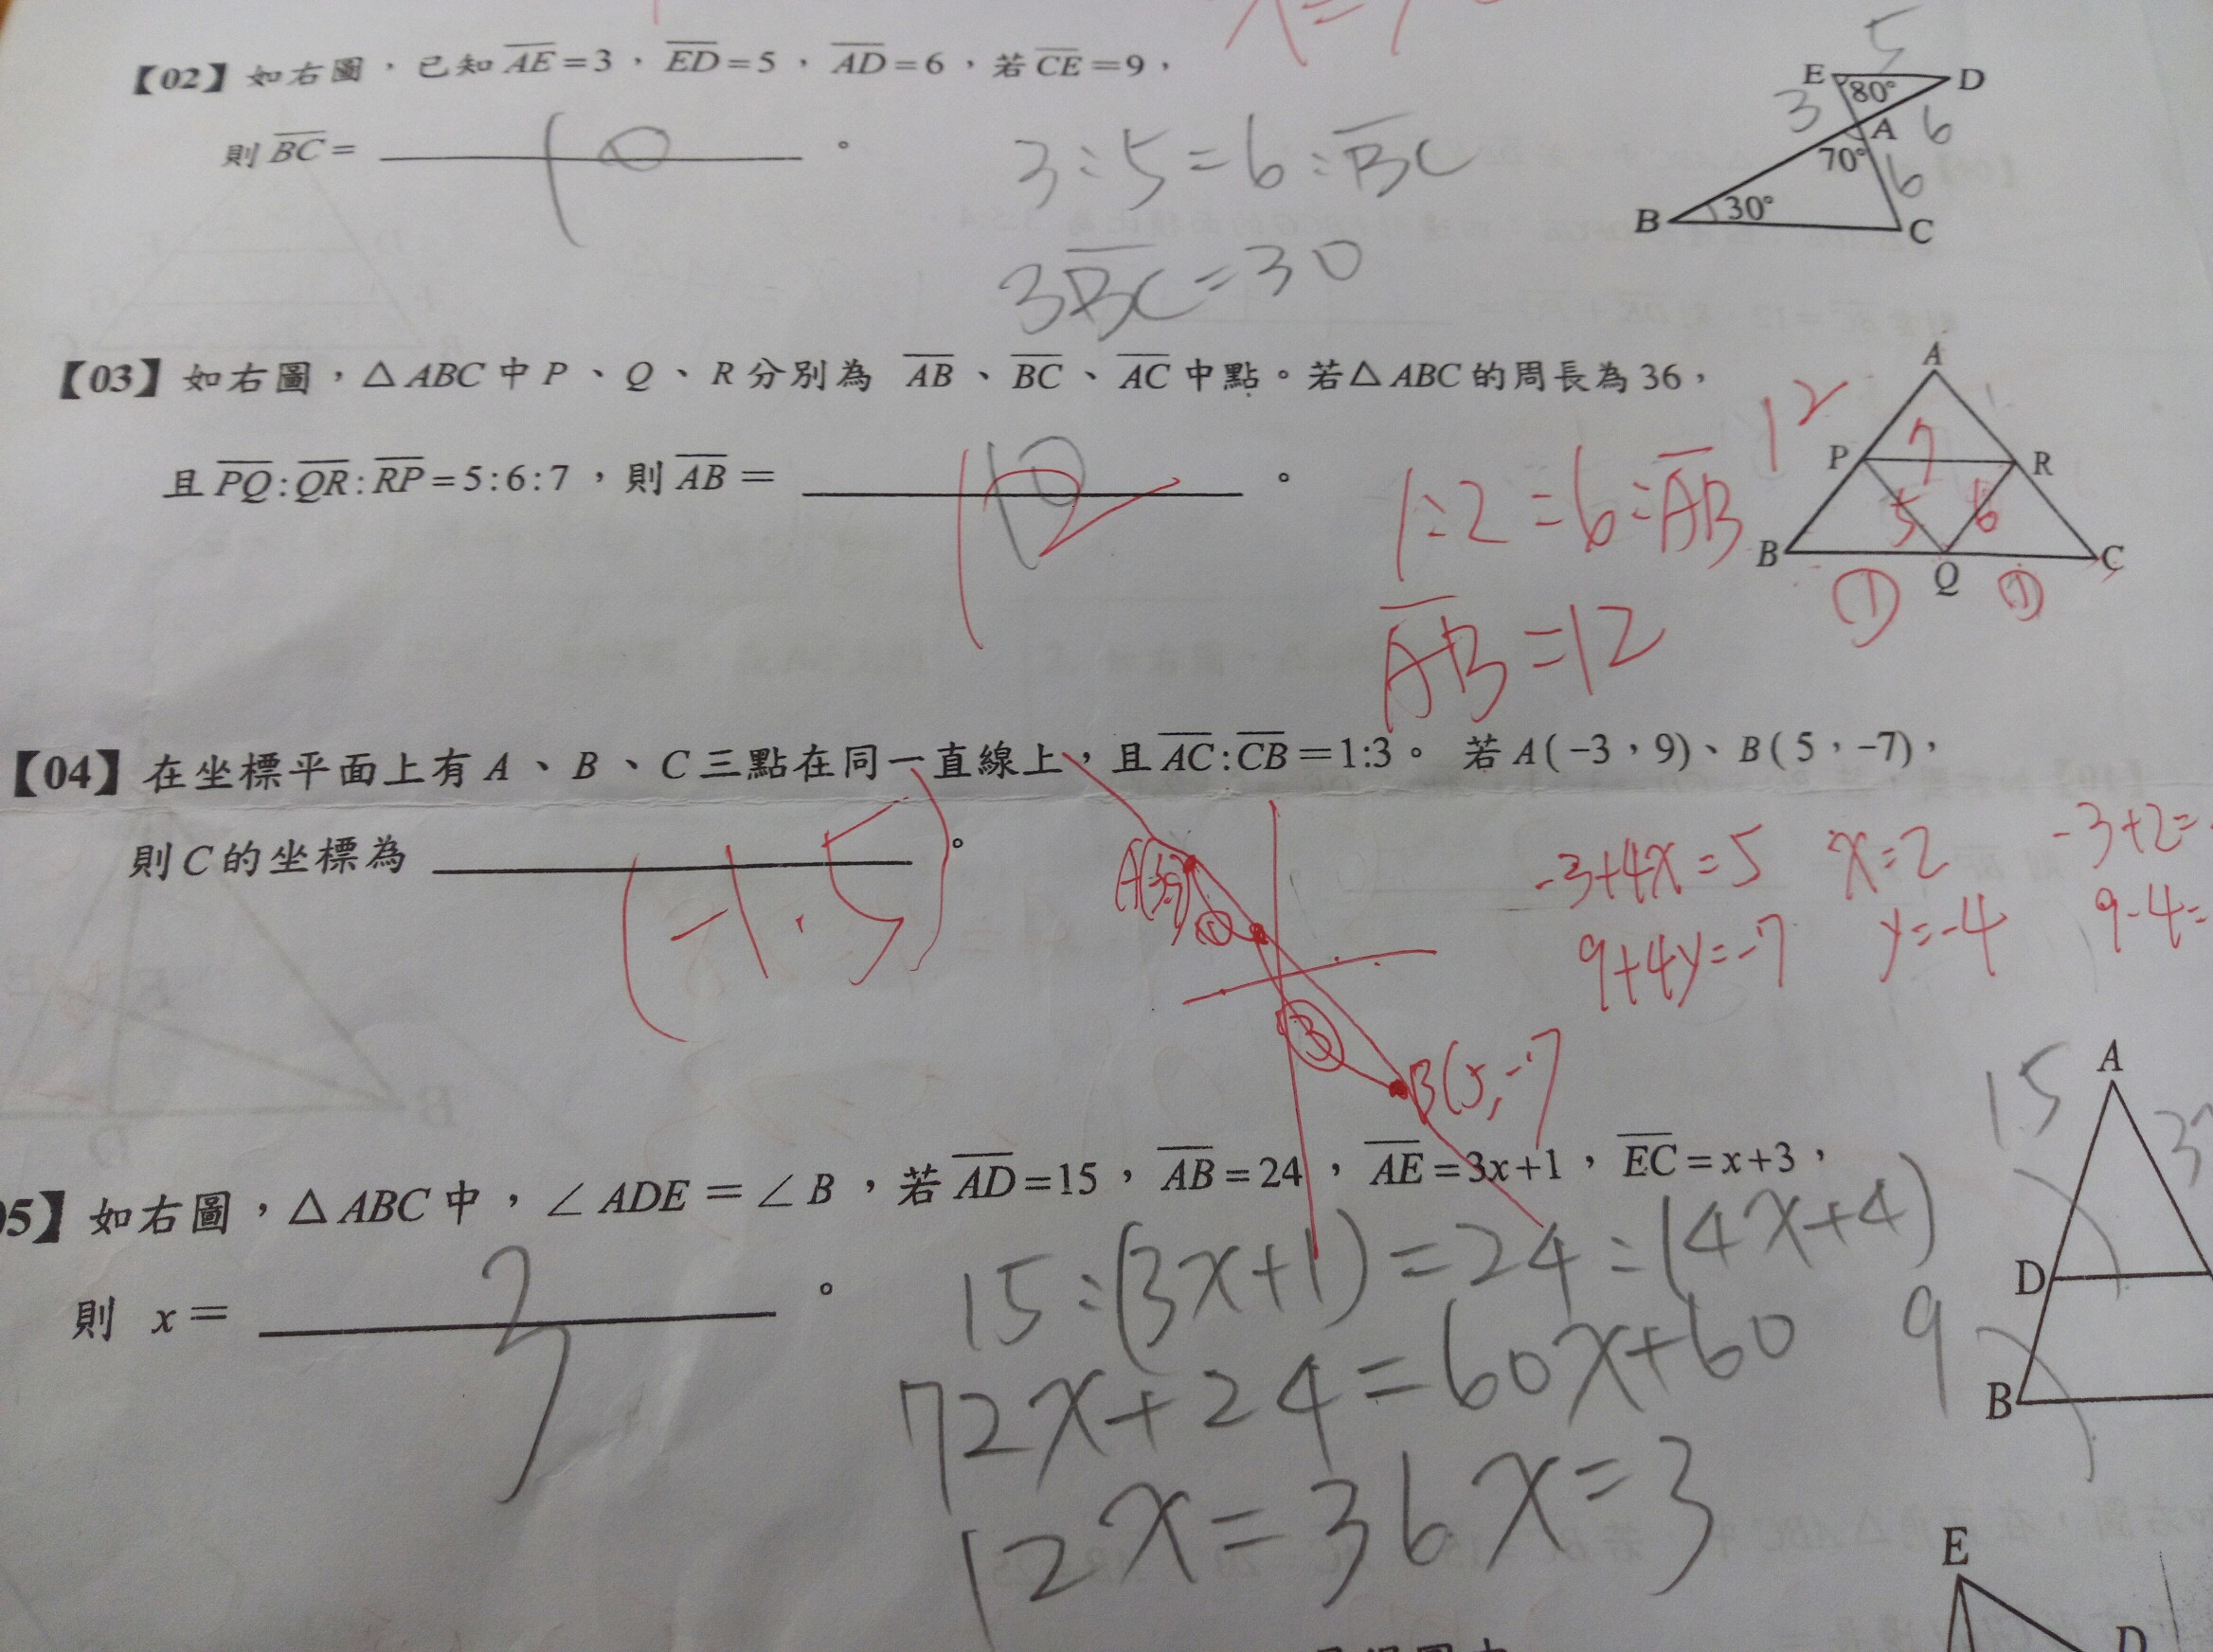 x=
【02】如右圖，已知 AE=3，ED=5，AD=6，若 CE=9，
則 BC= 10 。
3:5=6:BC
3BC=30
5
E 80° D
3 A 6
70° 6
B 30° C
【03】如右圖，△ABC 中 P、Q、R 分別為 AB、BC、AC 中點。若△ABC 的周長為 36，
且 PQ:QR:RP=5:6:7，則 AB= 10 12 。
1:2=6:AB
AB=12
A
12
P 7 R
5 6
B Q C
① ①
【04】在坐標平面上有 A、B、C 三點在同一直線上，且 AC:CB=1:3。若 A(-3，9)、B(5，-7)，
則 C 的坐標為 (-1.5) 。
①
③
B(5,-7
-3+4x=5 x=2 -3+2=
9+4y=-7 y=-4 9-4=
05】如右圖，△ABC 中，∠ADE=∠B，若 AD=15，AB=24，AE=3x+1，EC=x+3，
則 x= 3 。
15:(3x+1)=24:(4x+4)
72x+24=60x+60
12x=36 x=3
A
15 3
D
9
B
E
D